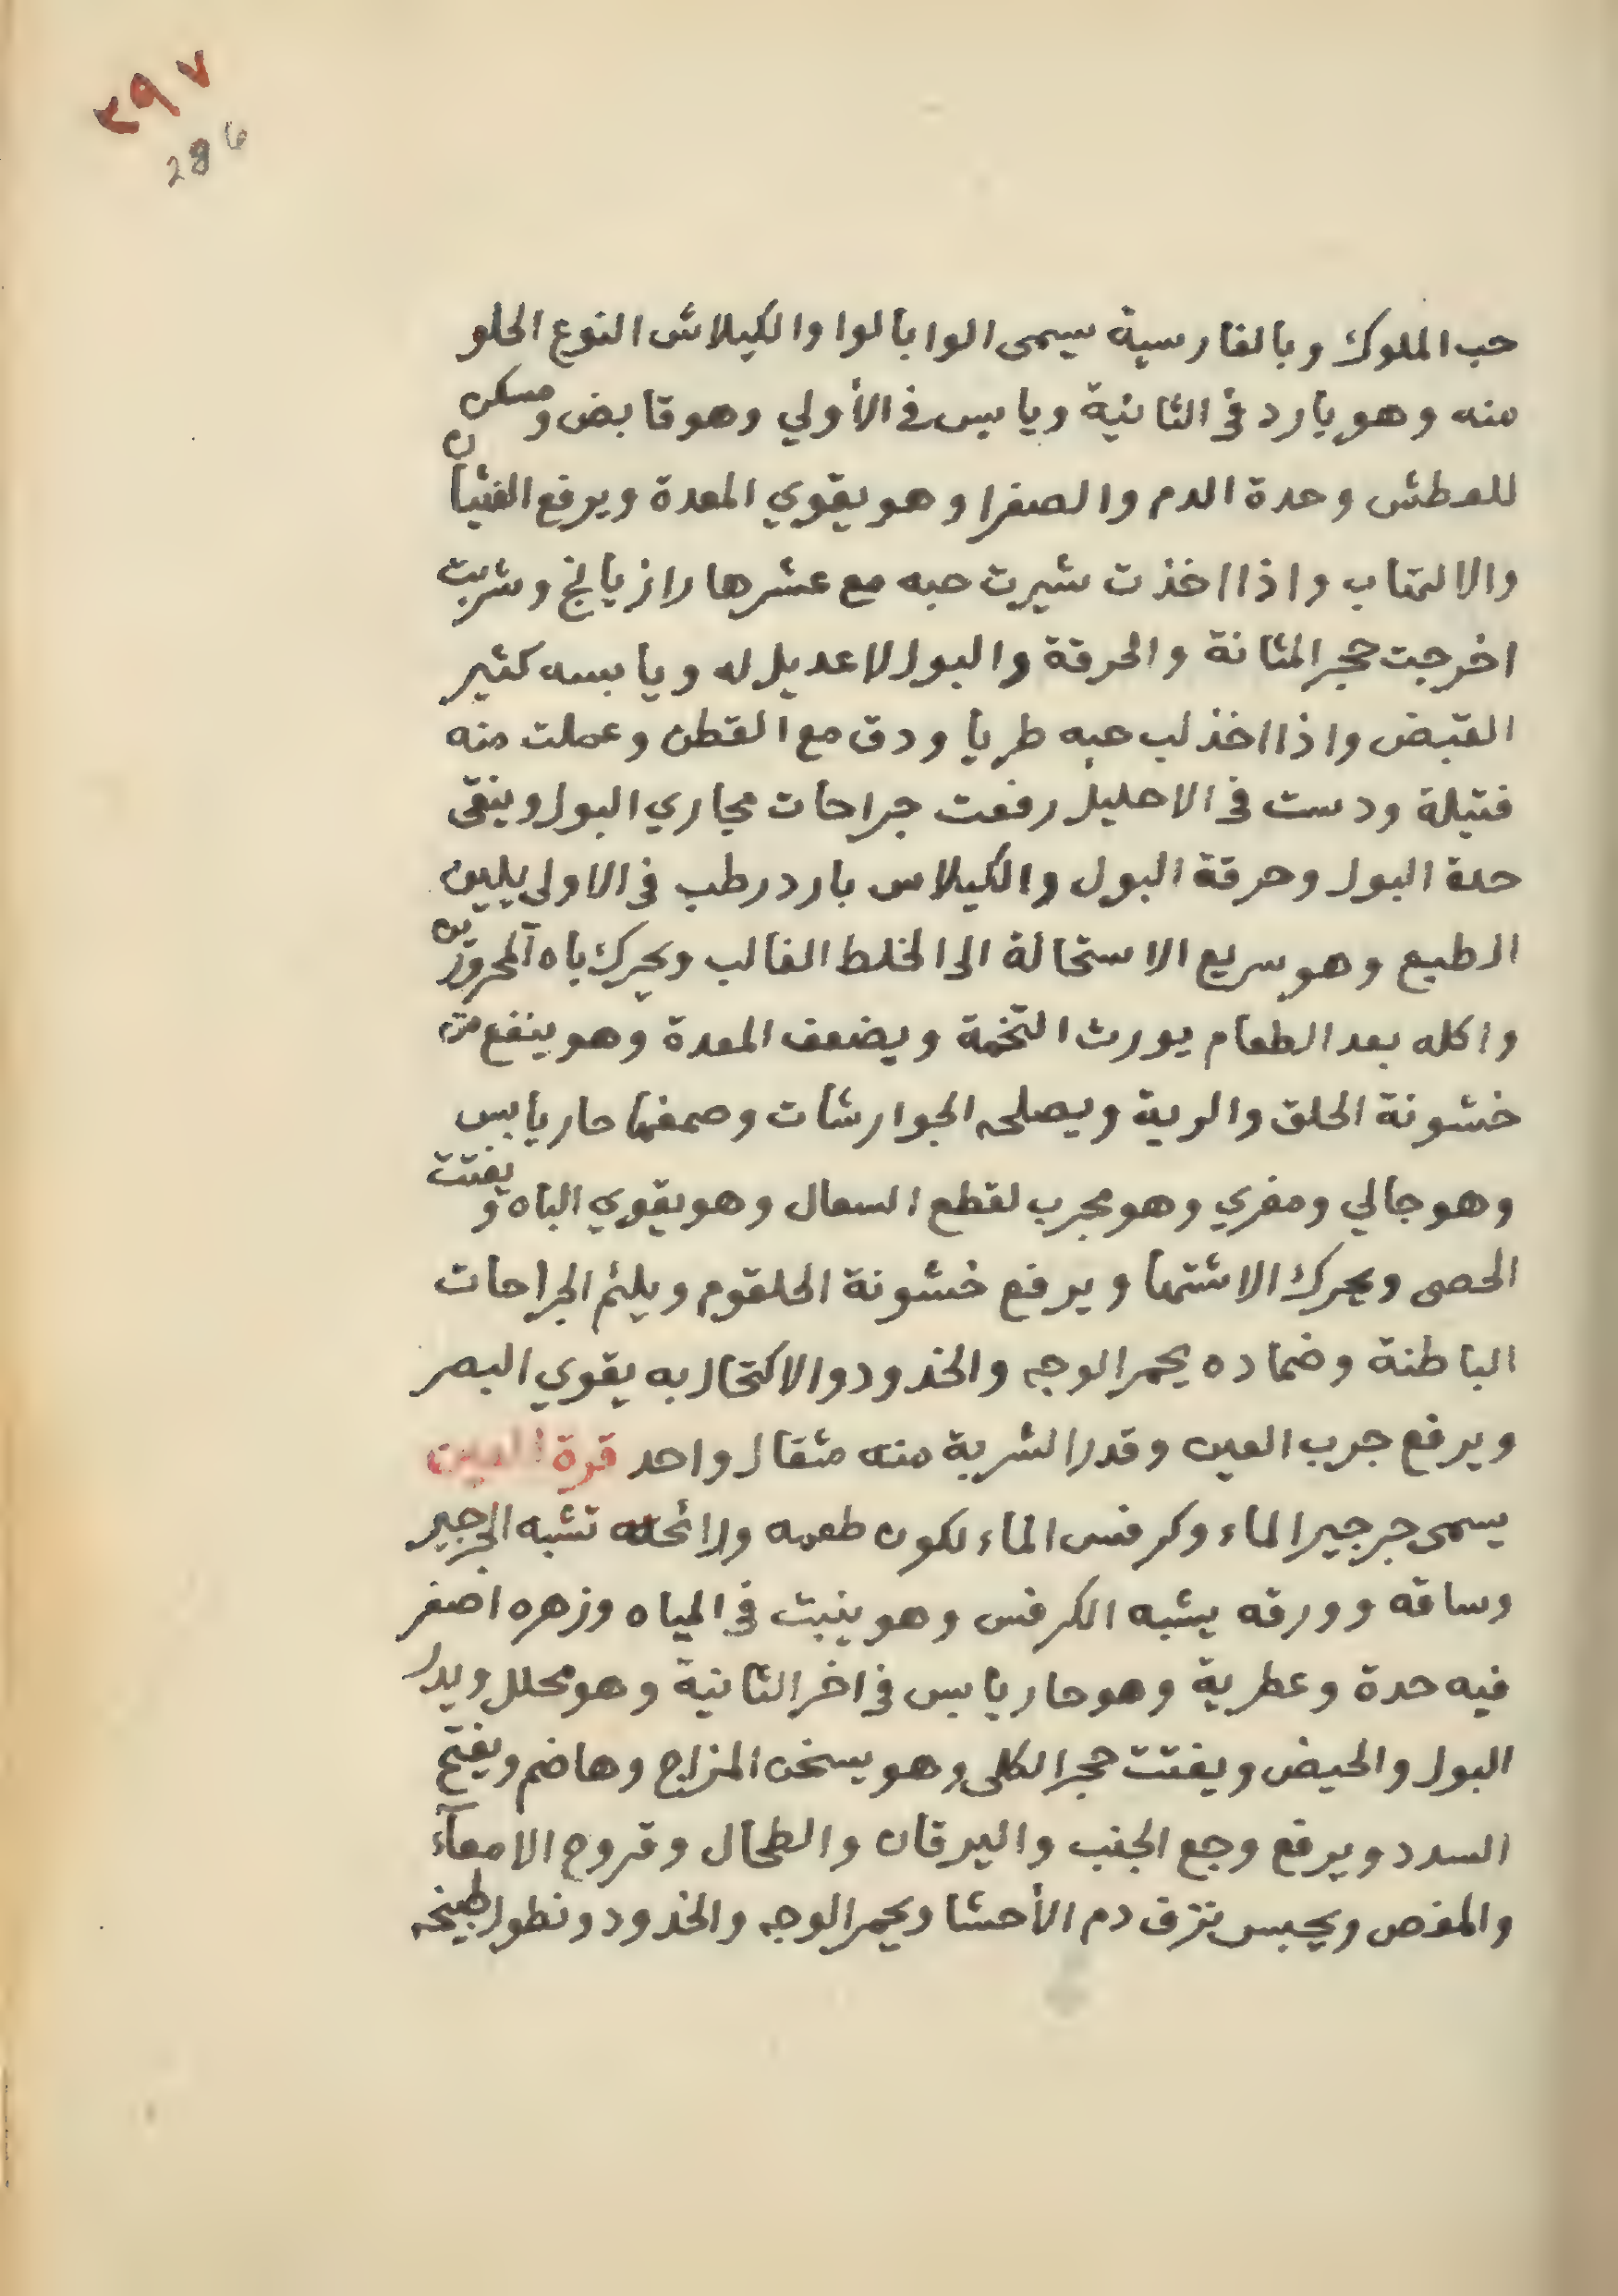 ٢٩٧
286
حب الملوك وبالفارسية يسمى الوا بالوا والكيلاش النوع الحلو
منه وهو بارد في الثانية ويابس في الأولي وهو قابض ومسكن
للعطش وحدة الدم والصفرا وهو يقوي المعدة ويرفع الغثيان
والالتهاب واذا اخذت شيرت حبه مع عشرها رازيانج وشربت
اخرجت حجر المثانة والحرقة والبول لا عديل له ويابسه كثير
القبض واذا اخذ لب حبه طريا ودق مع القطن وعملت منه
فتيلة ودست في الاحليل رفعت جراحات مجاري البول وينقى
حدة البول وحرقة البول والكيلاس بارد رطب في الاولى يلين
الطبع وهو سريع الاستحالة الى الخلط الغالب ويحرك باه المحرورين
واكله بعد الطعام يورث التخمة ويضعف المعدة وهو ينفع من
خشونة الحلق والرية ويصلحه الجوارشات وصمغها حار يابس
وهو جالي ومغري وهو مجرب لقطع السعال وهو يقوي الباه ويفتت
الحصى ويحرك الاشتها ويرفع خشونة الحلقوم ويلئم الجراحات
الباطنة وضماده يحمر الوجه والخدود والاكتحال به يقوي البصر
ويرفع جرب العين وقدر الشربة منه مثقال واحد قرة العين
يسمى جرجير الماء وكرفس الماء لكون طعمه ورائحته تشبه الجرجير
وساقه وورقه يشبه الكرفس وهو ينبت في المياه وزهره اصفر
فيه حدة وعطرية وهو حار يابس في اخر الثانية وهو محلل ويدر
البول والحيض ويفتت حجر الكلى وهو يسخن المزاج وهاضم ويفتح
السدد ويرفع وجع الجنب واليرقان والطحال وقروح الامعآء
والمغص ويحبس نزف دم الأحشا ويحمر الوجه والخدود ونطول طبيخه